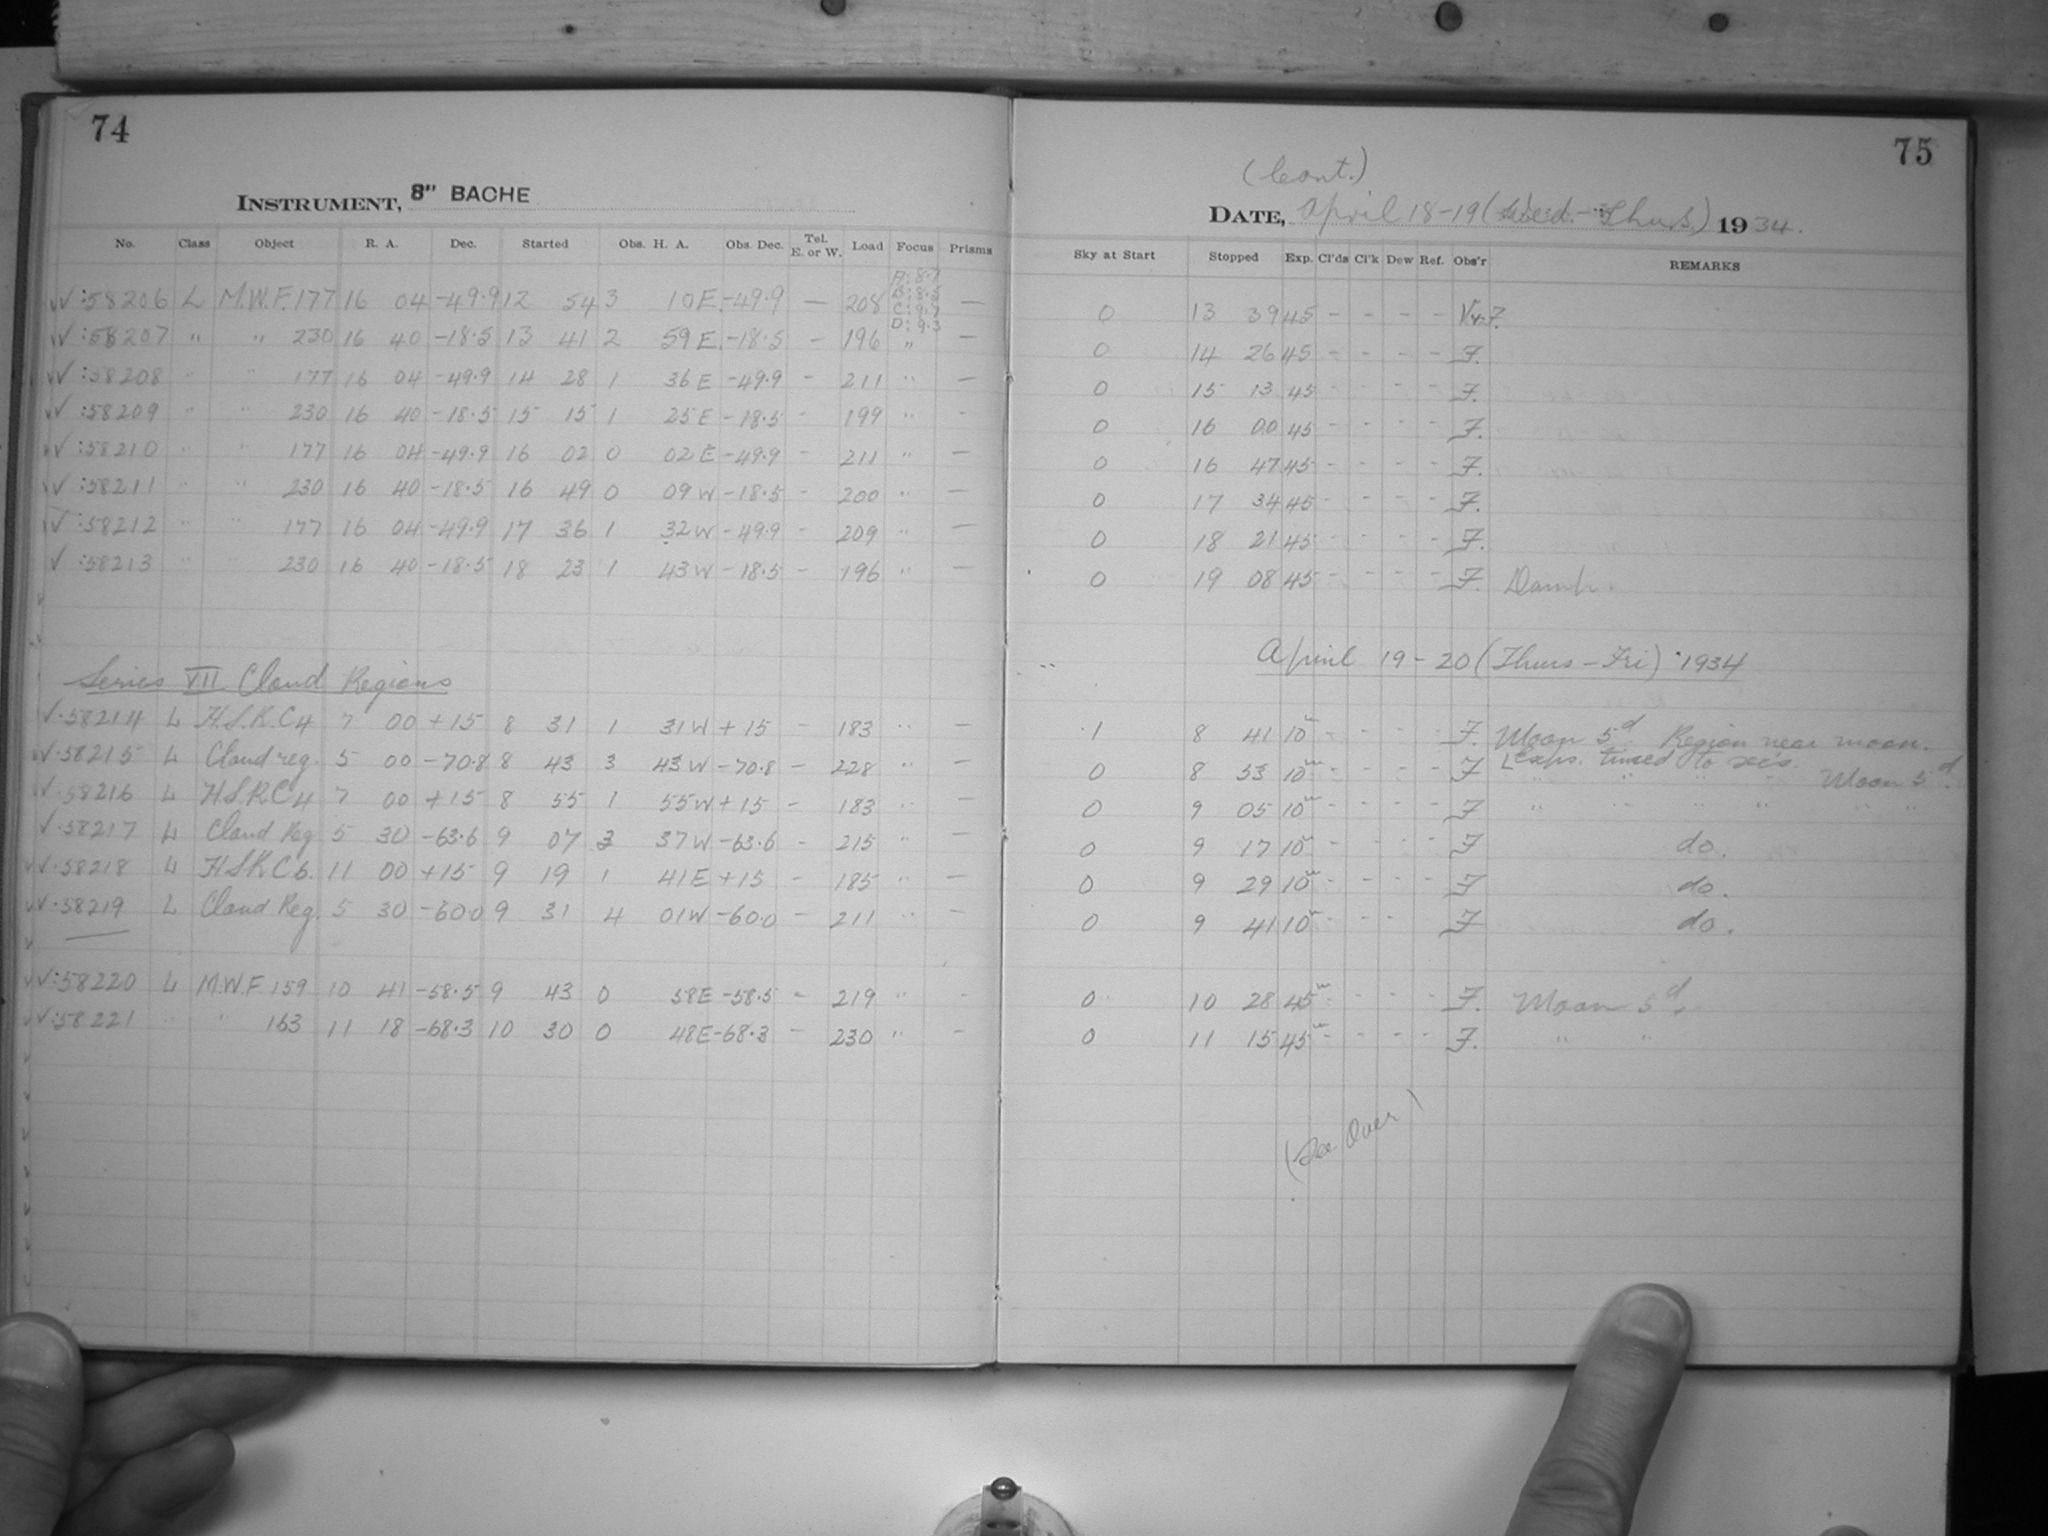 74
INSTRUMENT, 8" BACHE
No. Class Object R. A. Dec. Started Obs. H. A. Obs. Dec. Tel. E. or W. Load Focus Prisms
√ :58206 L M.W.F. 177 16 04 -49.9 12 54 3 10 E -49.9 — 208 —
B: 8.5
D: 9.3
√ :58207 " " 230 16 40 -18.5 13 41 2 59 E -18.5 - 196 " —
√ :58208 " " 177 16 04 -49.9 14 28 1 36 E -49.9 - 211 " —
√ :58209 " " 230 16 40 -18.5 15 15 1 25 E -18.5 - 199 " -
√ :58210 " " 177 16 04 -49.9 16 02 0 02 E -49.9 - 211 " —
√ :58211 " " 230 16 40 -18.5 16 49 0 09 W -18.5 - 200 " —
√ :58212 " " 177 16 04 -49.9 17 36 1 32 W -49.9 - 209 " —
√ :58213 " " 230 16 40 -18.5 18 23 1 43 W -18.5 - 196 " —
Series VII Cloud Regions
√ .58214 L H.S.R.C 4 7 00 +15 8 31 1 31 W +15 - 183 " —
√ .58215 L Cloud reg. 5 00 -70.8 8 43 3 43 W -70.8 - 228 " —
√ .58216 L H.S.R.C 4 7 00 +15 8 55 1 55 W +15 - 183 " —
√ .58217 L Cloud Reg 5 30 -63.6 9 07 3 37 W -63.6 - 215 " —
√ .58218 L H.S.R.C 6. 11 00 +15 9 19 1 41 E +15 - 185 " —
√ .58219 L Cloud Reg. 5 30 -60.0 9 31 4 01 W -60.0 - 211 " —
√ :58220 L M.W.F. 159 10 41 -58.5 9 43 0 58 E -58.5 - 219 " -
√ :58221 " " 163 11 18 -68.3 10 30 0 48 E -68.3 - 230 " —
75
(Cont.)
DATE, April 18-19 (Wed. - Thurs.) 1934.
Sky at Start Stopped Exp. Cl'ds Cl'k Dew Ref. Obs'r REMARKS
0 13 39 45 - - - -
0 14 26 45 - - - - F.
0 15 13 45 - - - - F.
0 16 00 45 - - - - F.
0 16 47 45 - - - - F.
0 17 34 45 - - - - F.
0 18 21 45 - - - - F.
0 19 08 45 - - - - F. Damp.
April 19-20 (Thurs-Fri) 1934
1 8 41 10m - - - - F. Moon 5d Region near moon.
Exps. timed to secs.
0 8 53 10m - - - - F " " " " Moon 5d.
0 9 05 10m - - - - F " " " " " "
0 9 17 10m - - - - F do.
0 9 29 10m - - - - F do.
0 9 41 10m - - - - F do.
0 10 28 45m - - - - F. Moon 5d.
0 11 15 45m - - - - F. " "
(See Over)